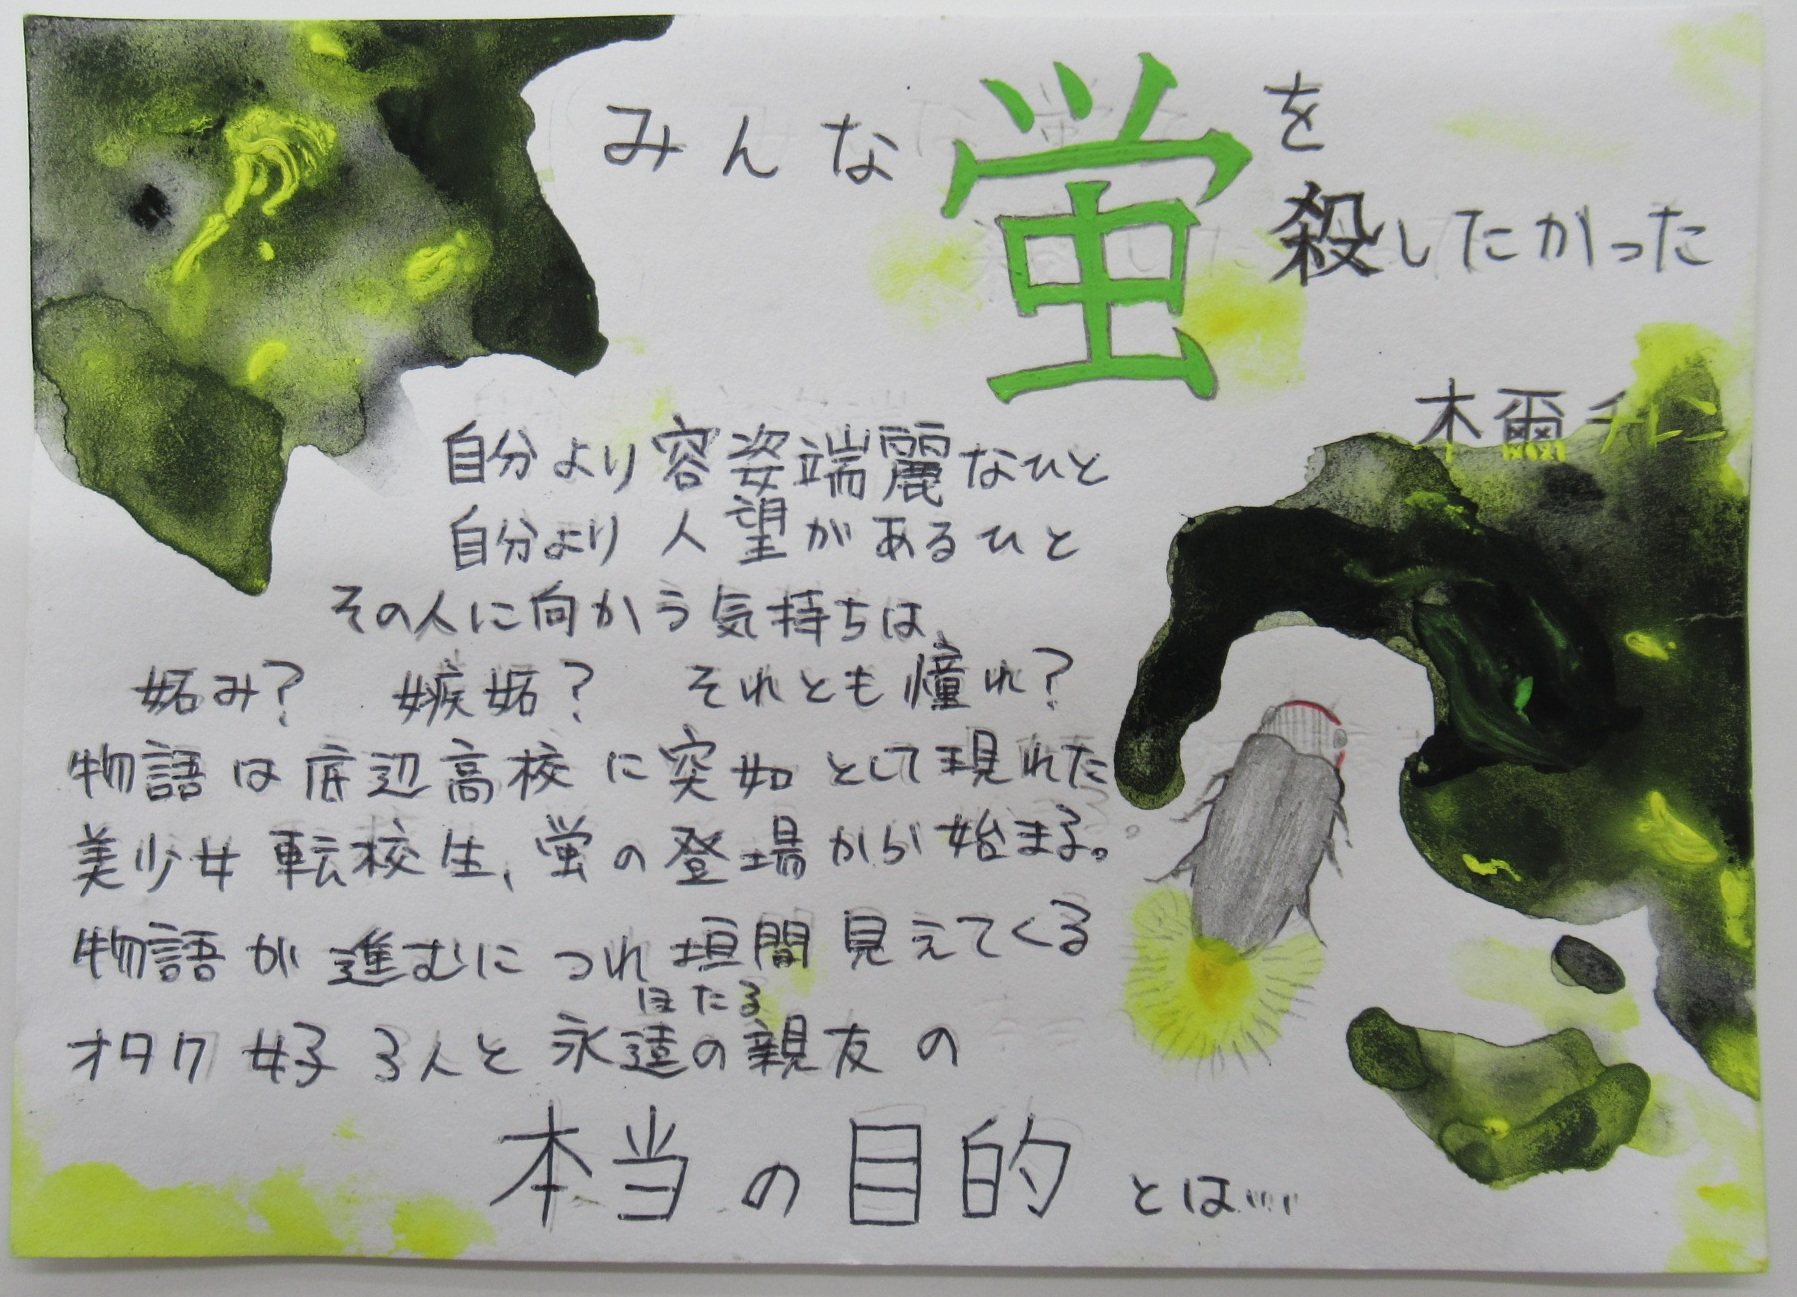 みんな蛍を殺したかった
木爾チレン
自分より容姿端麗なひと
自分より人望があるひと
その人に向かう気持ちは、
妬み？ 嫉妬？ それとも憧れ？
物語は底辺高校に突如として現れた
美少女転校生、蛍の登場から始まる。
物語が進むにつれ垣間見えてくる
ほたる
オタク女子3人と永遠の親友の
本当の目的とは....